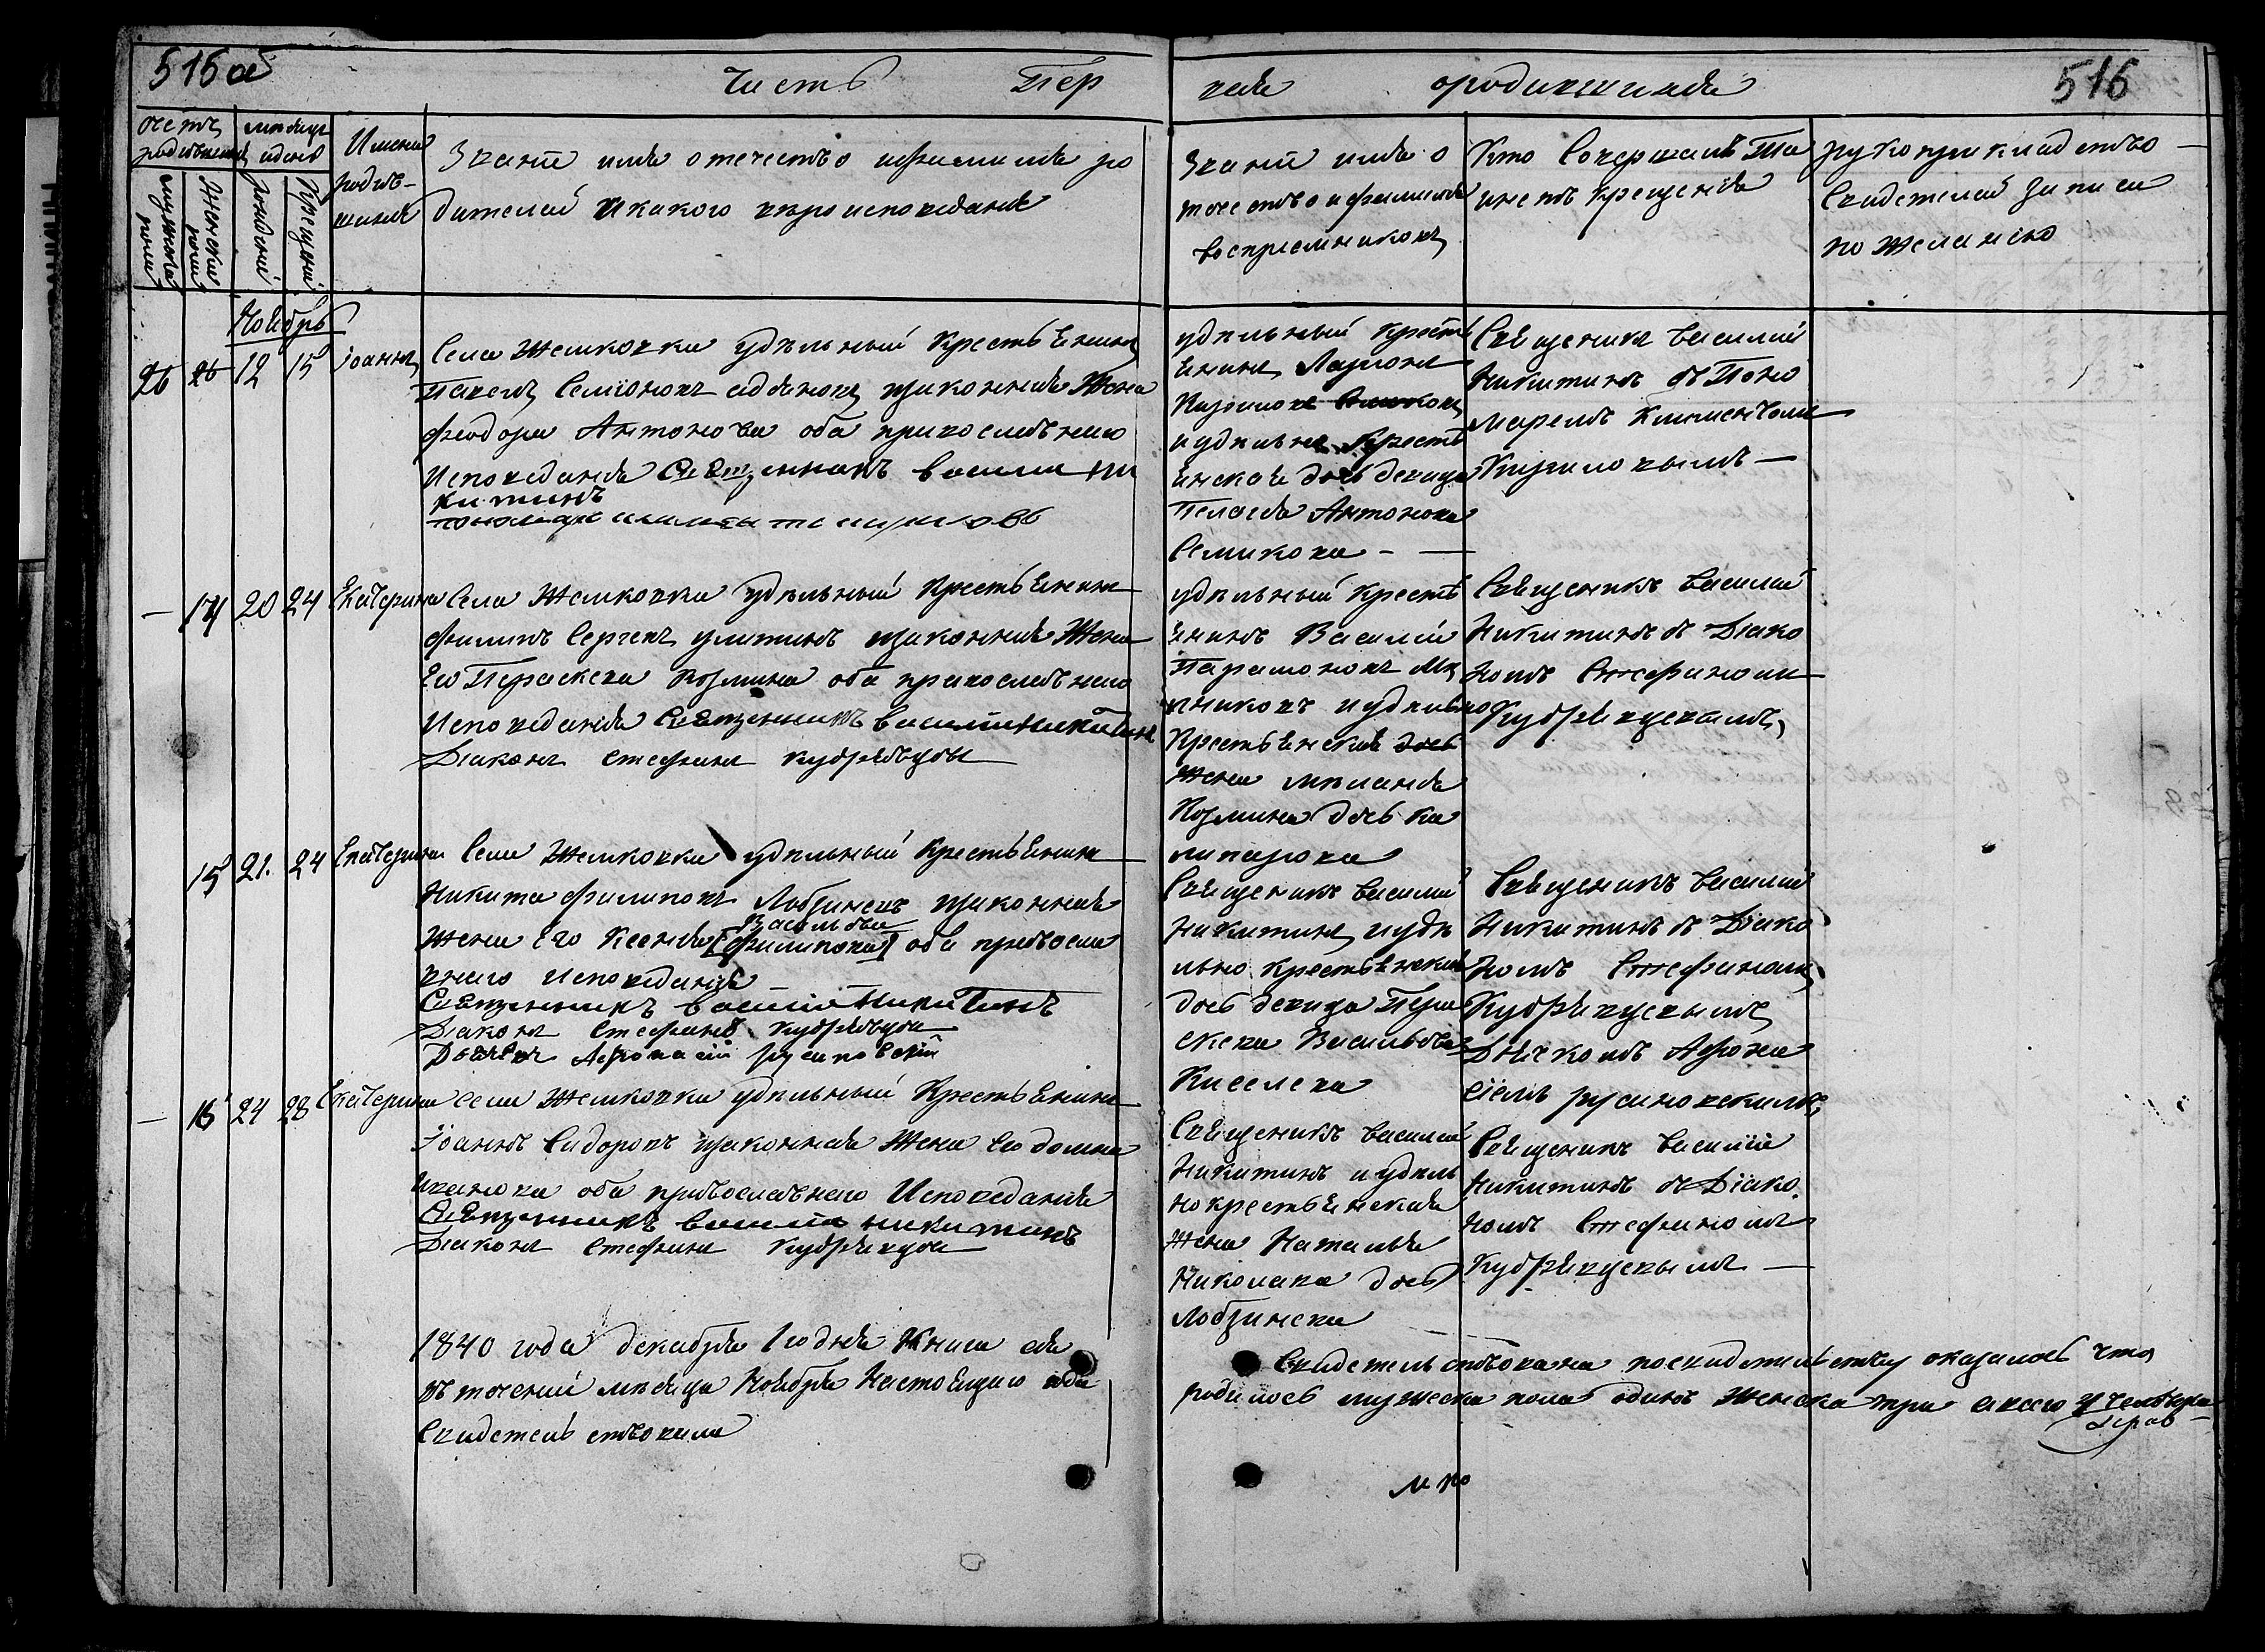 515 об
Часть Пер
вая о родившихся
516
счетъ родившихся
мужеска пола
женска пола
месяцъ и день
рождения
крещения
Имена родив-
шихся
Звание имя отечество и фамилия ро
дителей и какого вероисповедания
Звание имя о
течество и фамилия
восприемниковъ
Кто Совершалъ Та
инство крещения
рукоприкладство
Свидетелей записи
по желанию
Ноябрь
26 12 15 Иоаннъ
Села Жемковки удельный Крестьенинъ
Павелъ Семионовъ законная Жена
Феодора Антонова оба православнаго
Исповедания Священникъ Василий Ни
китинъ
удельный Кресть
енинъ Ларионъ
Кириловъ
и удельна Кресть
енская дочь девица
Пелагея Антонова
Семикова -
Священникъ Василий
Никитинъ съ Поно
маремъ Климентомъ
Кириловымъ —
— 14 20 24 Екатерина
Села Жемковки удельный Крестьенинъ
Филипъ Сергеевъ Улитинъ законная Жена
Его Пераскева Козмина оба православнаго
Исповедания Священникъ Василий Никитинъ
Диаконъ Стефанъ Кудрявцевъ
удельный Кресть
енинъ Василий
Парамоновъ Мя
сниковъ и удельно
Крестьенская дочь
Жена Меланья
Козмина дочь
Священникъ Василий
Никитинъ съ Диако
номъ Стефаномъ
Кудрявцевымъ
15 21. 24 Екатерина
Села Жемковки удельный Крестьенинъ
Никита Филиповъ Лобзиневъ законная
Жена Его Ксения Васильева [Филипова] оба правосла
внаго исповедания
Священникъ Василий Никитинъ
Диаконъ Стефанъ Кудрявцевъ
Дьячекъ Афонасий Русановский
Священникъ Василий
Никитинъ и уде
льно крестьенская
дочь девица Пера
скева Васильева
Киселева
Священникъ Василий
Никитинъ съ Диако
номъ Стефаномъ
Кудрявцевымъ
Дячкомъ Афона
сиемъ Русановскимъ
— 16 24 28 Екатерина
Села Жемковки удельный Крестьенинъ
Иоаннъ Сидоровъ законная Жена Его Домна
Иванова оба православнаго Исповедания
Священникъ Василий Никитинъ
Диаконъ Стефанъ Кудрявцевъ
Священникъ Василий
Никитинъ и удель
но крестьенская
Жена Наталья
Николаева дочь
Лобзинева
Священникъ Василий
Никитинъ съ Диако
номъ Стефаномъ
Кудрявцевымъ —
1840 года декабря 1го дня Книга сия
въ течений месяца Ноября Настоящаго года
Свидетельствована
Свидетельствована по свидетельству оказалось что
родилось мужеска пола одинъ Женска три а всего 4 четверо